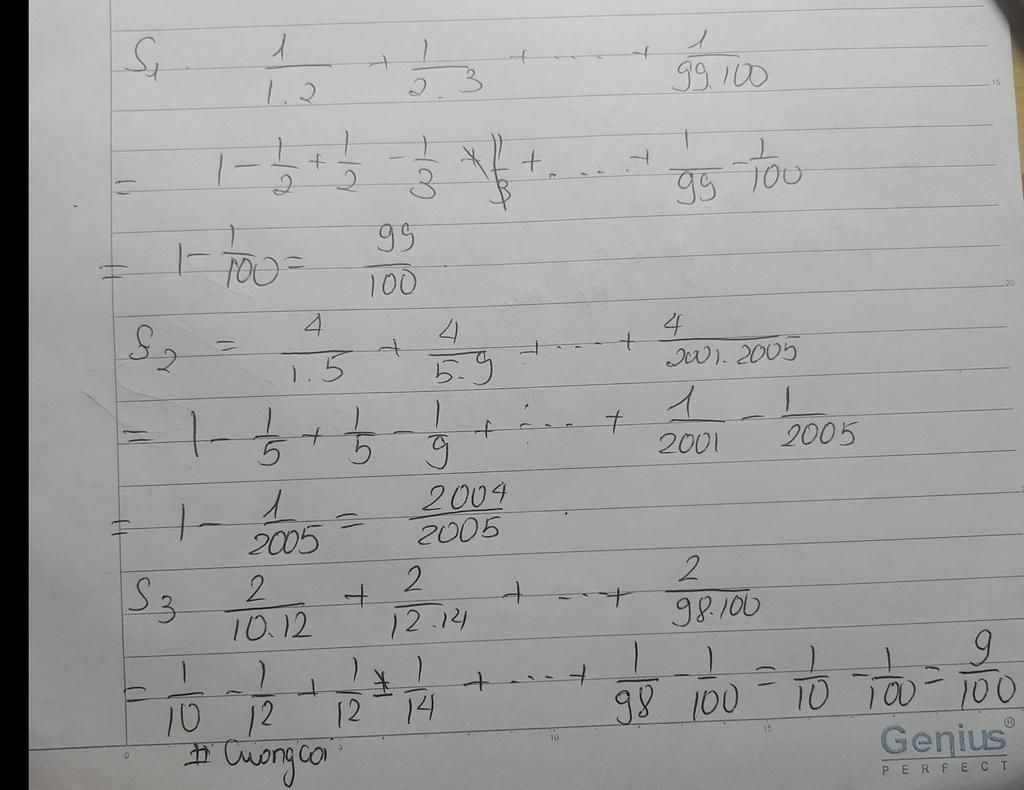 S₁ 1/1.2 + 1/2.3 + .... + 1/99.100
= 1 - 1/2 + 1/2 - 1/3 + .... + 1/99 - 1/100
= 1 - 1/100 = 99/100
S₂ = 4/1.5 + 4/5.9 + ... + 4/2001.2005
= 1 - 1/5 + 1/5 - 1/9 + .... + 1/2001 - 1/2005
= 1 - 1/2005 = 2004/2005
S₃ 2/10.12 + 2/12.14 + ... + 2/98.100
= 1/10 - 1/12 + 1/12 - 1/14 + ... + 1/98 - 1/100 = 1/10 - 1/100 = 9/100
# Cuongcoi
Genius®
PERFECT
15
20
0 5 10 15